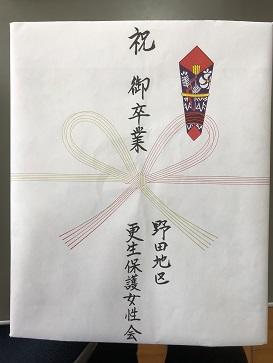 祝
御卒業
野田地区
更生保護女性会